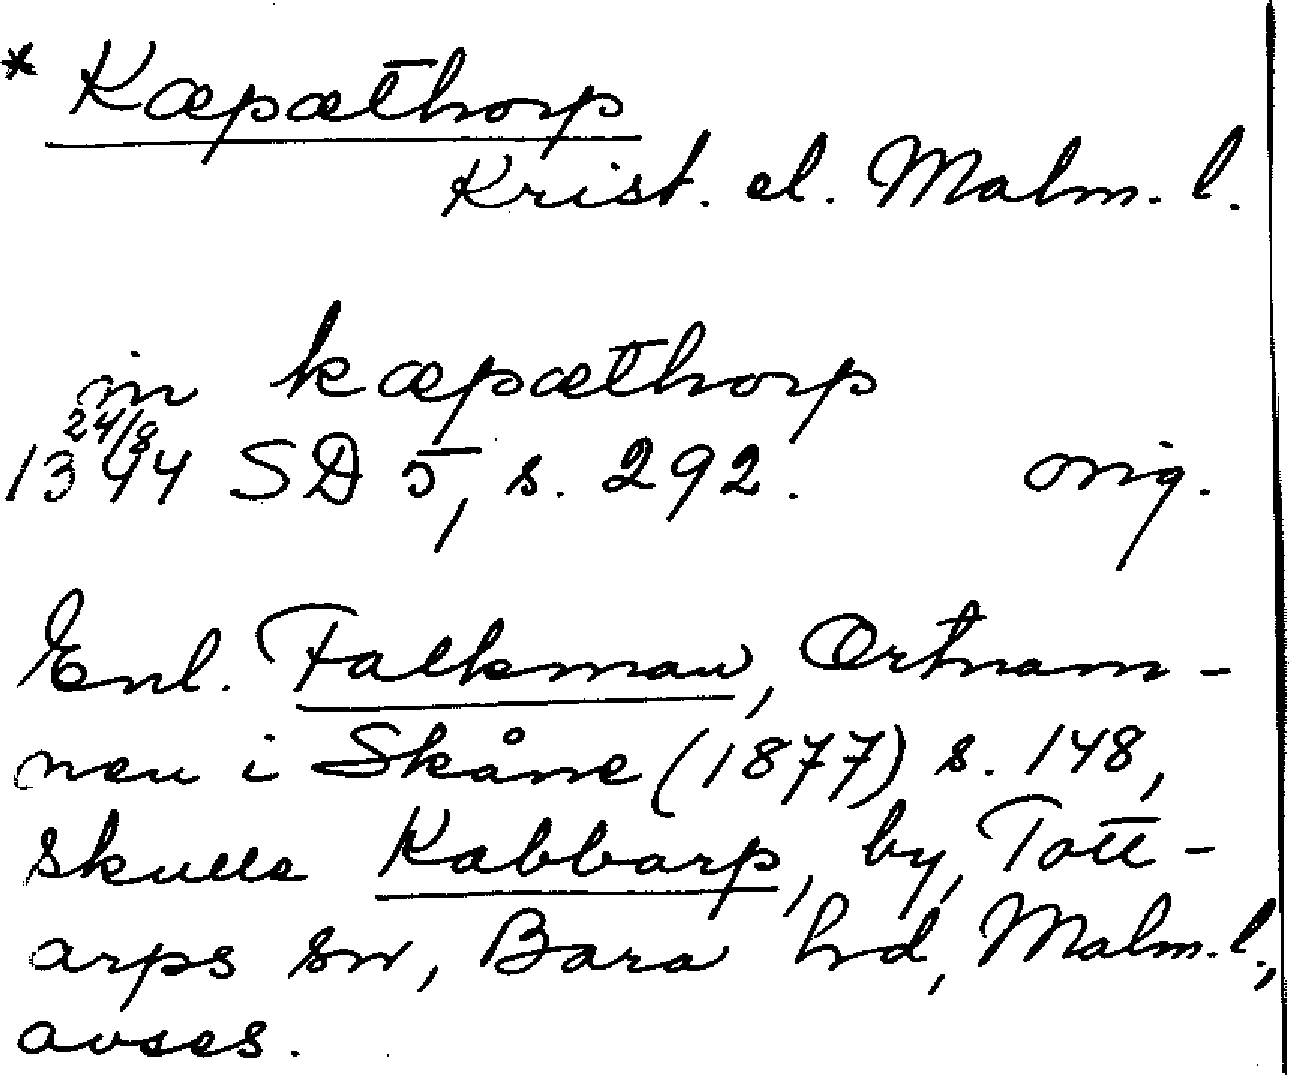 * Kæpæthorp
Krist. el. Malm. l.
in kæpæthorp
24/8
1344 SD 5, s. 292. orig.
Enl. Falkman, Ortnam-
nen i Skåne (1877) s. 148,
skulle Kabbarp, by, Tott-
arps sn, Bara hd, Malm. l.,
avses.